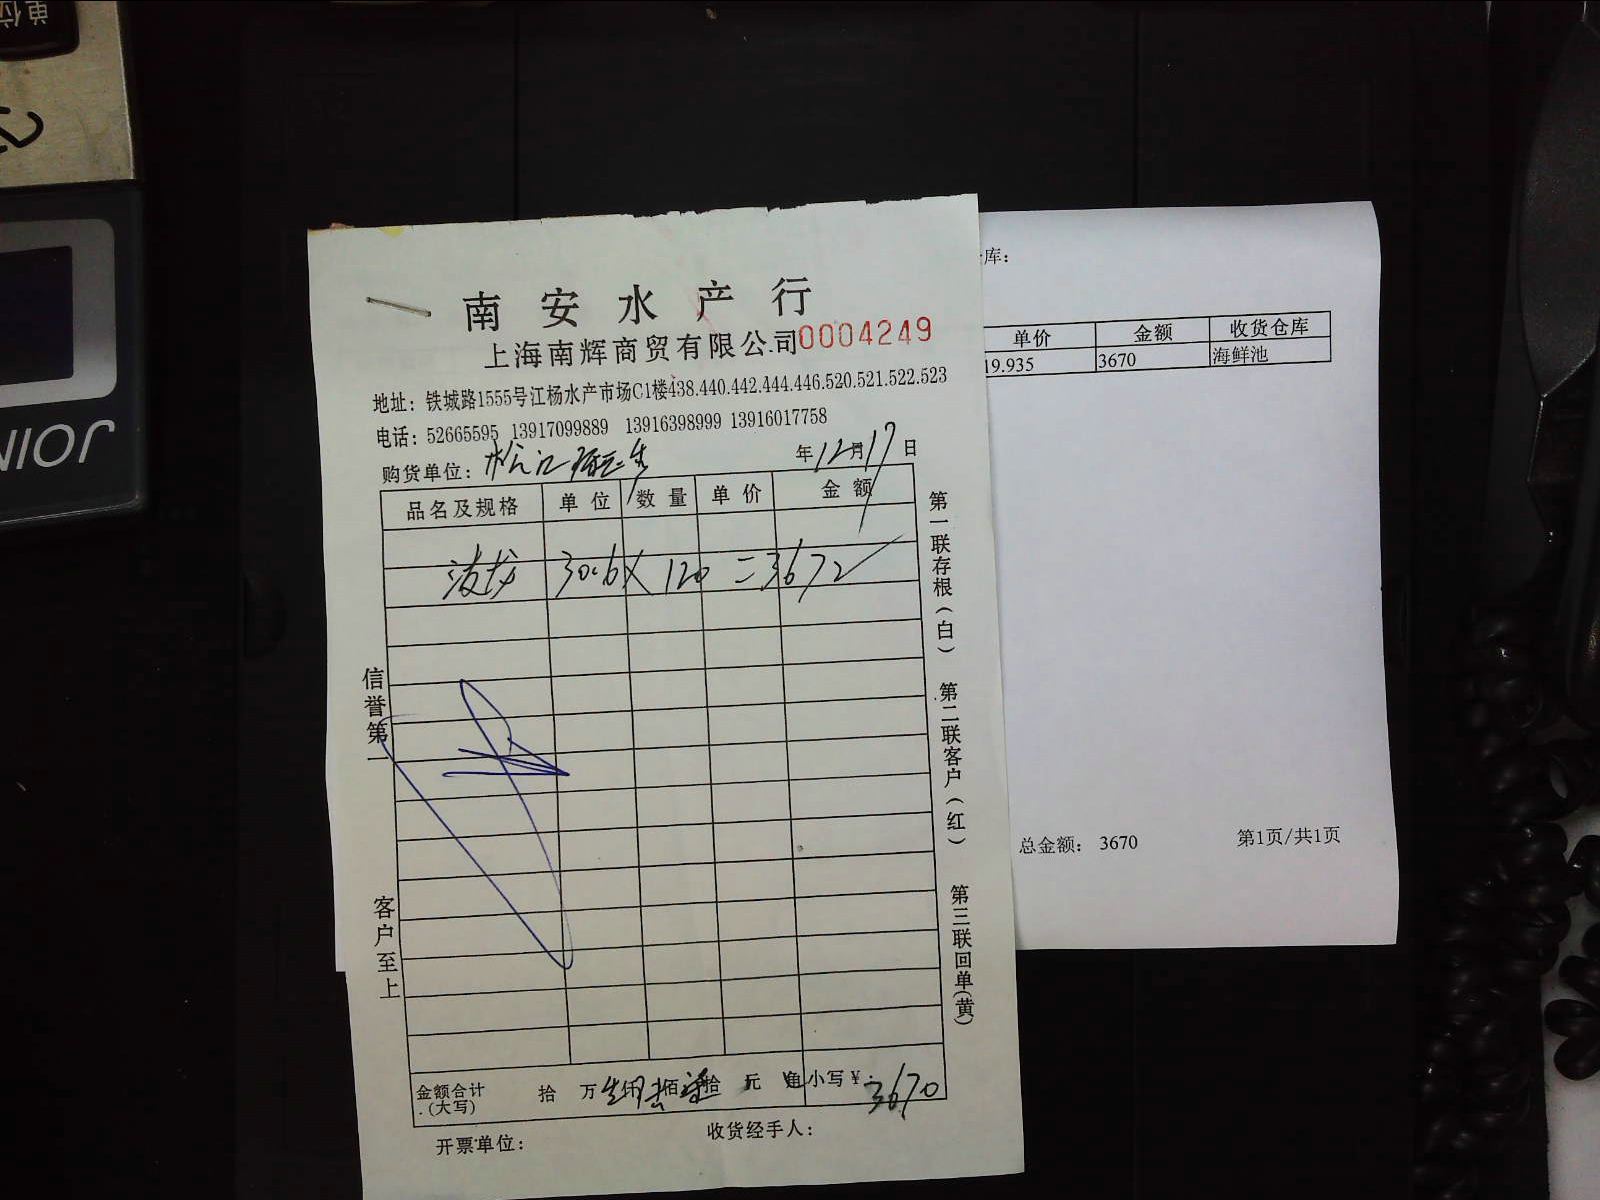 单位
JOIN
南安水产行
上海南辉商贸有限公司 0004249
地址：铁城路1555号江杨水产市场C1楼438.440.442.444.446.520.521.522.523
电话：52665595 13917099889 13916398999 13916017758
购货单位：松江 年12月17日
品名及规格 单位 数量 单价 金额
波龙 30.6 X 120 = 3672
信誉第一
客户至上
第一联存根(白)
第二联客户(红)
第三联回单(黄)
金额合计(大写) 拾 万 仟 佰 拾 元 角 小写¥：3670
开票单位： 收货经手人：
库：
单价 金额 收货仓库
19.935 3670 海鲜池
总金额： 3670 第1页/共1页